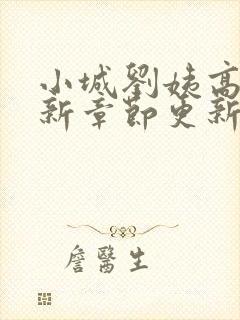 小城劉姨高
新章節更新
詹醫生